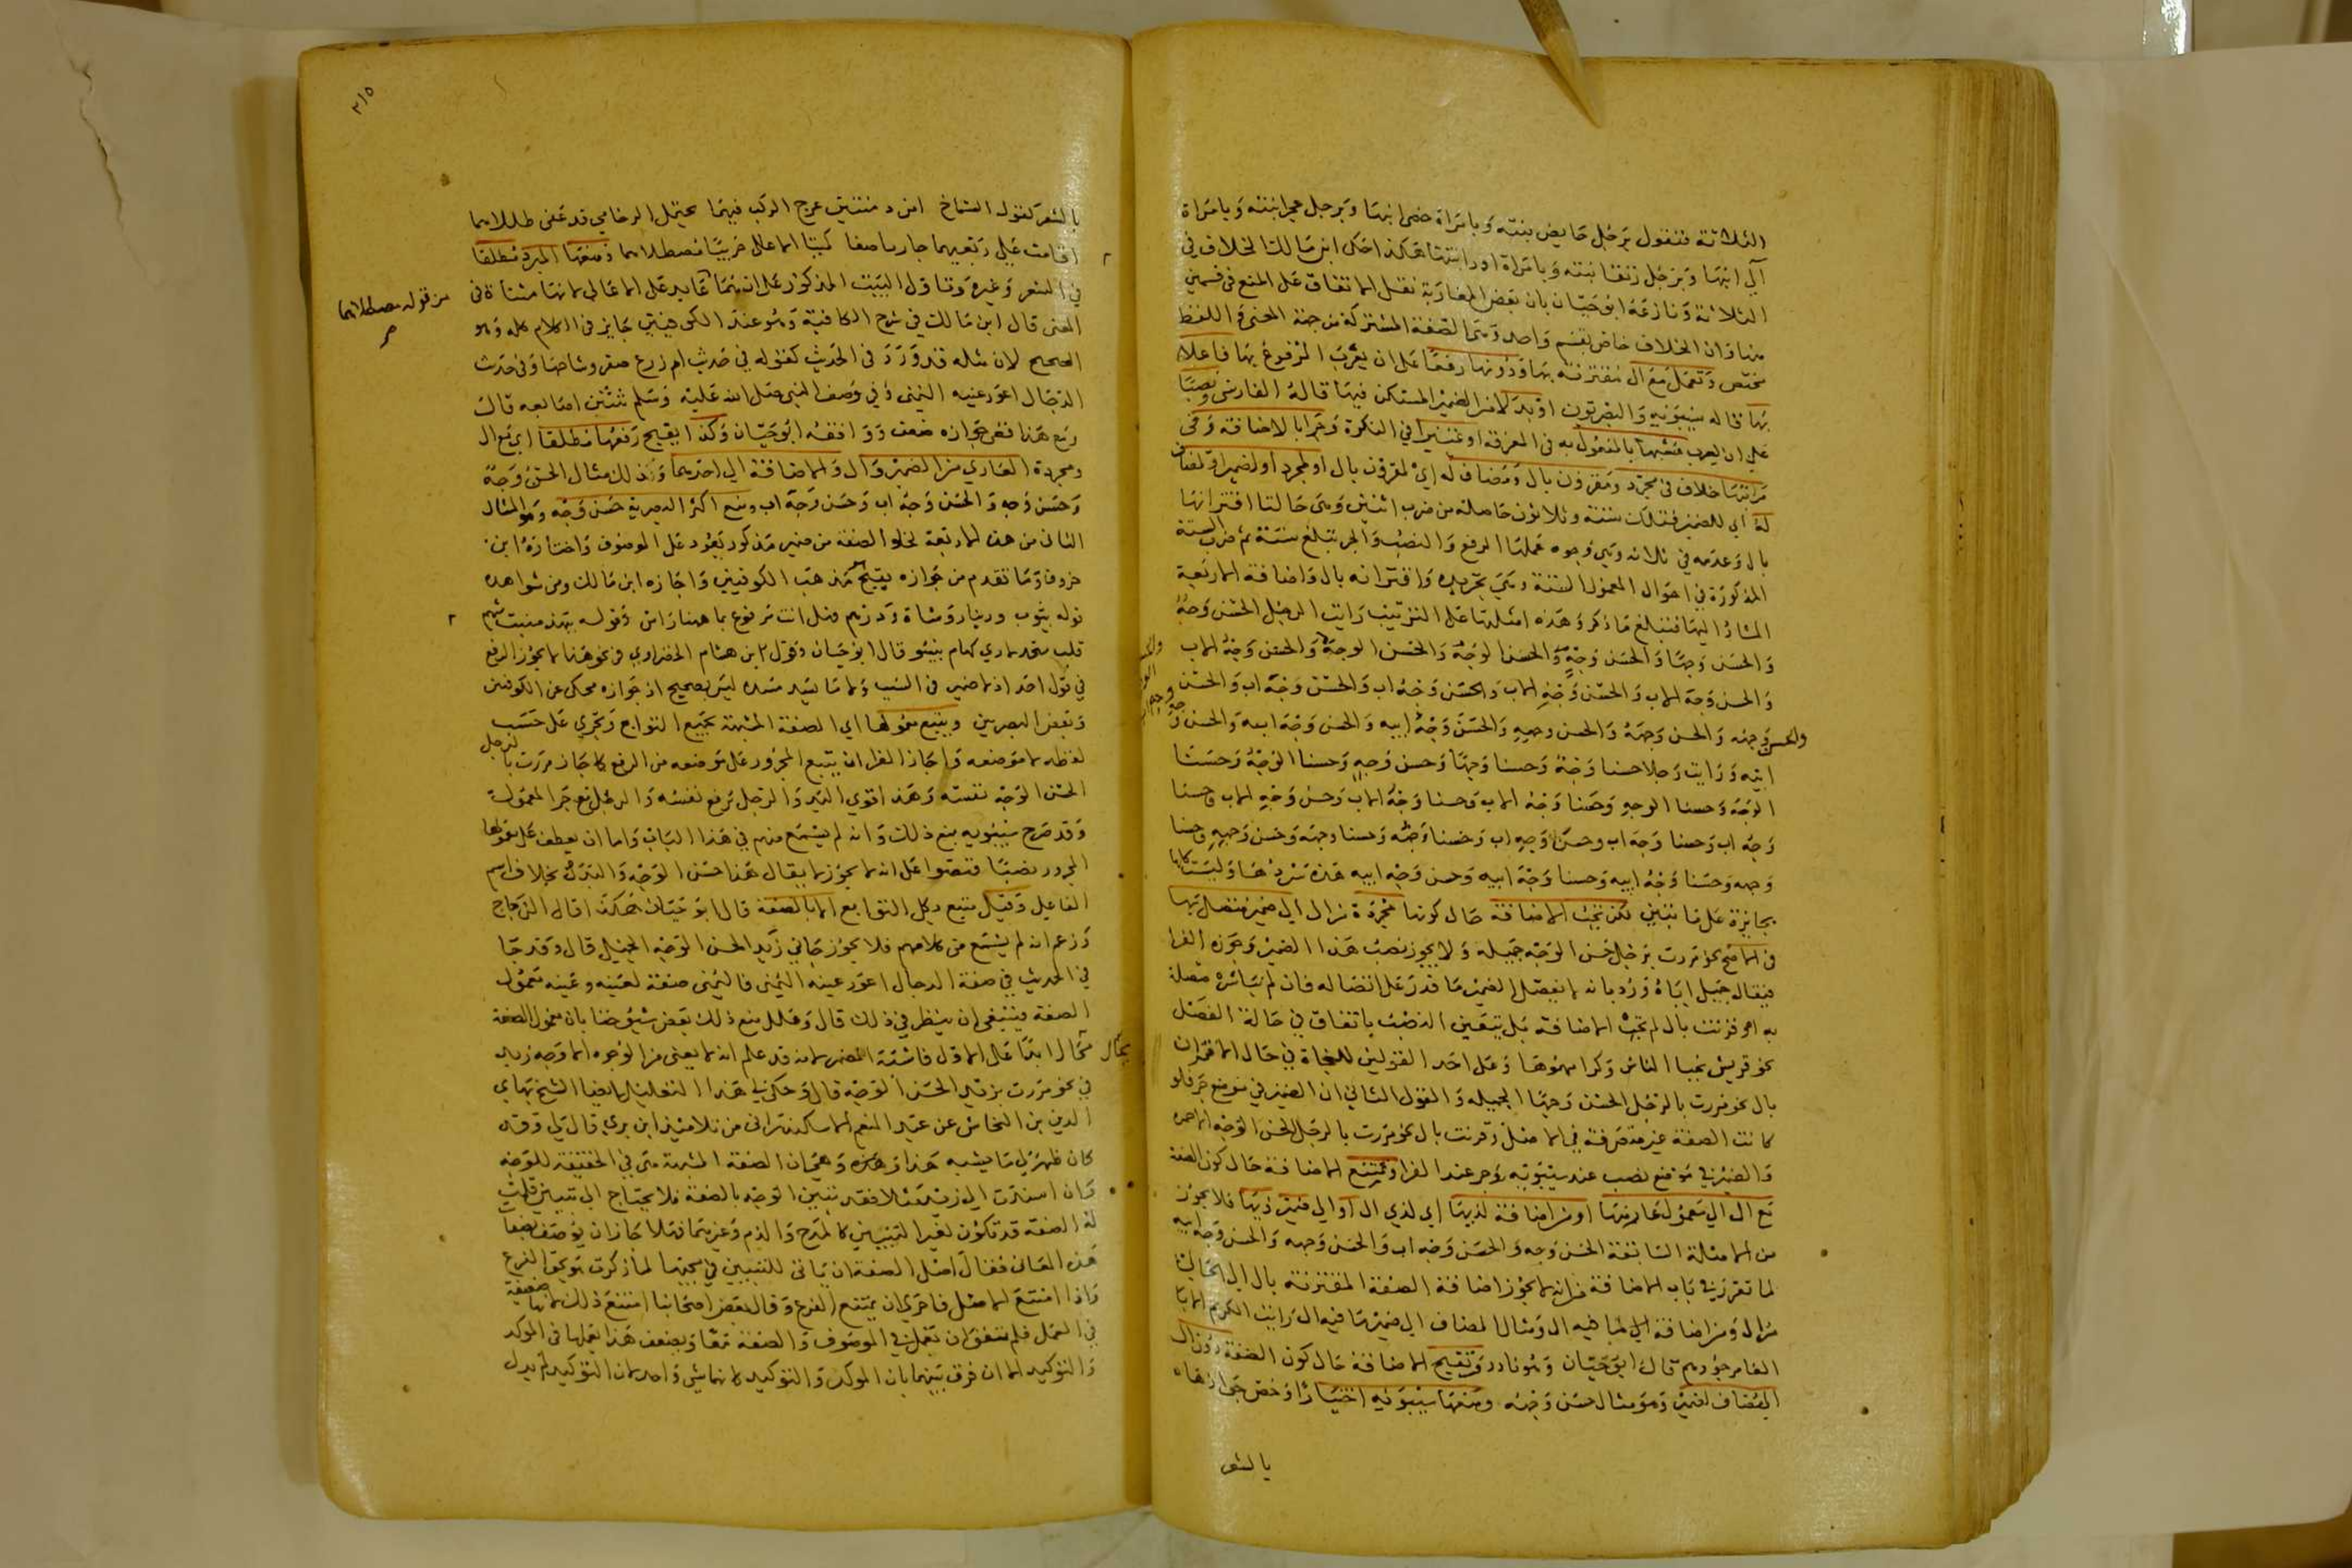 الثلاثة فتقول برجل حايض بنته وبامراة خصى ابنها وبرجل عجرا بنته وبامراة
آلى ابنها وبرجل رتقا بنته وبامراة ادر ابنتها هكذا حكى ابن مالك الخلاف في
الثلاثة ونازعه ابو حيان بان بعض المغاربة نقل الاتفاق على المنع في قسمين
منها وان الخلاف خاص بقسم واحد وهى الصفة المشتركة من جهة المعنى واللفظ
مختص وتعمل مع ال مقترنة بها ودونها رفعا على ان يعرب المرفوع بها فاعلا
بها قاله سيبويه والبصريون او بدلا من الضمير المستكن فيها قاله الفارسى ونصبا
على ان يعرب مشبها بالمفعول به في المعرفة او تمييزا في النكرة وجرا بالاضافة وفى
مراتبها خلاف في مجرد ومقرون بال ومضاف له اي لمقرون بال او لمجرد او لضمير او لمضاف
له اي للضمير فتلك ستة وثلاثون حاصلة من ضرب اثنين وهى حالتا اقترانها
بال وعدمه في ثلاثة وهي وجوه عملها الرفع والنصب والجر تبلغ ستة ثم ضرب الستة
المذكورة في احوال المعمول الستة وهى تجريده واقترانه بال واضافته الاربعة
المشار اليها فتبلغ ما ذكر وهذه امثلتها على الترتيب رايت الرجل الحسن وجه
والحسن وجها والحسن وجه والحسن الوجه والحسن الوجه والحسن وجه الاب
والحسن وجه الاب والحسن وجه الاب والحسن وجه اب والحسن وجه اب والحسن وجه
والحسن وجهه والحسن وجهه والحسن وجهه والحسن وجه ابيه والحسن وجه ابيه والحسن وجه
ابيه ورايت رجلا حسنا وجه وحسنا وجها وحسن وجه وحسنا الوجه وحسنا
الوجه وحسنا الوجه وحسنا وجه الاب وحسنا وجه الاب وحسن وجه الاب وحسنا
وجه اب وحسنا وجه اب وحسن وجه اب وحسنا وجهه وحسنا وجهه وحسن وجهه وحسنا
وجهه وحسنا وجه ابيه وحسنا وجه ابيه وحسن وجه ابيه هذه سردها وليست كلها
بجايزة على ما نبين لكن تجب الاضافة حال كونها مجردة من ال الى ضمير متصل بها
في الاصح نحو مررت برجل حسن الوجه جميله ولا يجوز نصب هذا الضمير وجوزه الفرا
فيقال جميل اياه ورد بانه لا يفصل الضمير ما قدر على اتصاله فان لم تباشره متصلة
به او قرنت بال لم تجب الاضافة بل يتعين النصب باتفاق في حالة الفصل
نحو قريش نجبا الناس وكرامهموها وعلى احد القولين للنحاة في حال الاقتران
بال نحو مررت بالرجل الحسن وجها الجميله والقول الثاني ان الضمير في موضع جر فلو
كانت الصفة غير متصرفة في الاصل وقرنت بال نحو مررت بالرجل الحسن الوجه الاحمره
والضمير في موضع نصب عند سيبويه وجر عند الفرا وتمتنع الاضافة حال كون الصفة
مع ال الى معمول عار منها او من اضافة لذيها اي لذي ال او الى ضمير ذيها فلا يجوز
من الامثلة السابقة الحسن وجه والحسن وجه اب والحسن وجهه والحسن وجه ابيه
لما تقرر في باب الاضافة من انه لا يجوز اضافة الصفة المقترنة بال الى الخالى
من ال ومن اضافة الى ما فيه ال ومثال المضاف الى ضميرها فيه ال رايت الكريم الابا
الغامر جودهم قال ابو حيان وهو نادر وتقبح الاضافة حال كون الصفة دون ال
الى مضاف لضمير وهو مثال حسن وجهه ومنعها سيبويه اختيارا وخص جوازها
بالشعر
٣١٥
بالشعر كقول الشماخ امن دمنتين عرج الركب فيهما بحقل الرخامى قد عفى طللاهما
اقامت على ربعيهما جارتا صفا كميتا الاعالى جونتا مصطلاهما ومنعها المبرد مطلقا
في الشعر وغيره وتاول البيت المذكور على ان هما عايد على الاعالى لانها مثناة في
المعنى قال ابن مالك في شرح الكافية وهو عند الكوفيين جايز في الكلام كله وهو
الصحيح لان مثله قد ورد في الحديث كقوله في حديث ام زرع صفر وشاحها وفى حديث
الدجال اعور عينه اليمنى وفي وصف النبى صلى الله عليه وسلم شثن اصابعه قال
ومع هذا ففى جوازه ضعف ووافقه ابو حيان وكذا يقبح رفعها مطلقا اي مع ال
ومجردة العاري من الضمير وال والاضافة الى احدهما وذلك مثال الحسن وجه
وحسن وجه والحسن وجه اب وحسن وجه اب ومنع اكثر البصرية حسن وجه وهو المثال
الثانى من هذه الاربعة لخلو الصفة من ضمير مذكور يعود على الموصوف واختاره ابن
خروف وما تقدم من جوازه بقبح هو مذهب الكوفيين واجازه ابن مالك ومن شواهده
قوله بثوب ودينار وشاة ودرهم فهل انت مرفوع بما ههنا راس وقوله ببهمة منيت شهم
قلب منجد لا ذي كهام ينبو قال ابو حيان وقول ابن هشام الخضراوي في نحو هذا لا يجوز الرفع
في قول احد اذ لا ضمير في السبب ولا ما يسد مسده ليس بصحيح اذ جوازه محكى عن الكوفيين
وبعض البصريين ويتبع معمولها اي الصفة المشبهة بجميع التوابع وتجري على حسب
لفظه لا موضعه واجاز الفرا ان يتبع المجرور على موضعه من الرفع كما جاز مررت بالرجل
الحسن الوجه نفسه وهذا قوي اليد والرجل برفع نفسه والرجل مع جر المعمول
وقد صرح سيبويه بمنع ذلك وانه لم يسمع منهم في هذا الباب واما ان يعطف على معمولها
المجرور نصبا فنصوا على انه لا يجوز لا يقال هذا حسن الوجه والبدن بخلاف اسم
الفاعل وقيل يتبع بكل التوابع الا بالصفة قال ابو حيان هكذا قال الزجاج
وزعم انه لم يسمع من كلامهم فلا يجوز جاني زيد الحسن الوجه الجميل قال وقد جا
في الحديث في صفة الدجال اعور عينه اليمنى فاليمنى صفة لعينه وعينه معمول
الصفة فينبغى ان ينظر في ذلك قال وعلل منع ذلك بعض شيوخنا بان معمول الصفة
محال ابدا على الاول فاشبه المضمر لانه قد علم انه لا يعنى من الوجوه الا وجه زيد
في نحو مررت بزيد الحسن الوجه قال وحكى لى هذا التعليل ايضا الشيخ بهاي
الدين بن النحاس عن عبد المنعم الاسكندرانى من تلامذة ابن بري قال لي وقد
كان ظهر لى ما يشبه هذا وهو ان الصفة المشبهة هى في الحقيقة للوجه
وان اسندت الى زيد مثلا فقد تبين الوجه بالصفة فلا يحتاج الى تبيين قلت
له الصفة قد تكون لغير التبيين كالمدح والذم وغيرهما فهلا جاز ان يوصف بصفات
هذه المعانى فقال اصل الصفة ان ياتى للتبيين ومجيها لما ذكرت هو بحق الفرع
واذا امتنع الاصل فاحرى ان يمتنع الفرع وقال بعض اصحابنا امتنع ذلك لانها ضعيفة
في العمل فلم تقو ان تعمل في الموصوف والصفة معا ويضعف هذا بعملها في الموكد
والتوكيد الا ان فرق بينهما بان الموكد والتوكيد كانهما شي واحد لان التوكيد لم يدل
من قوله مصطلاهما